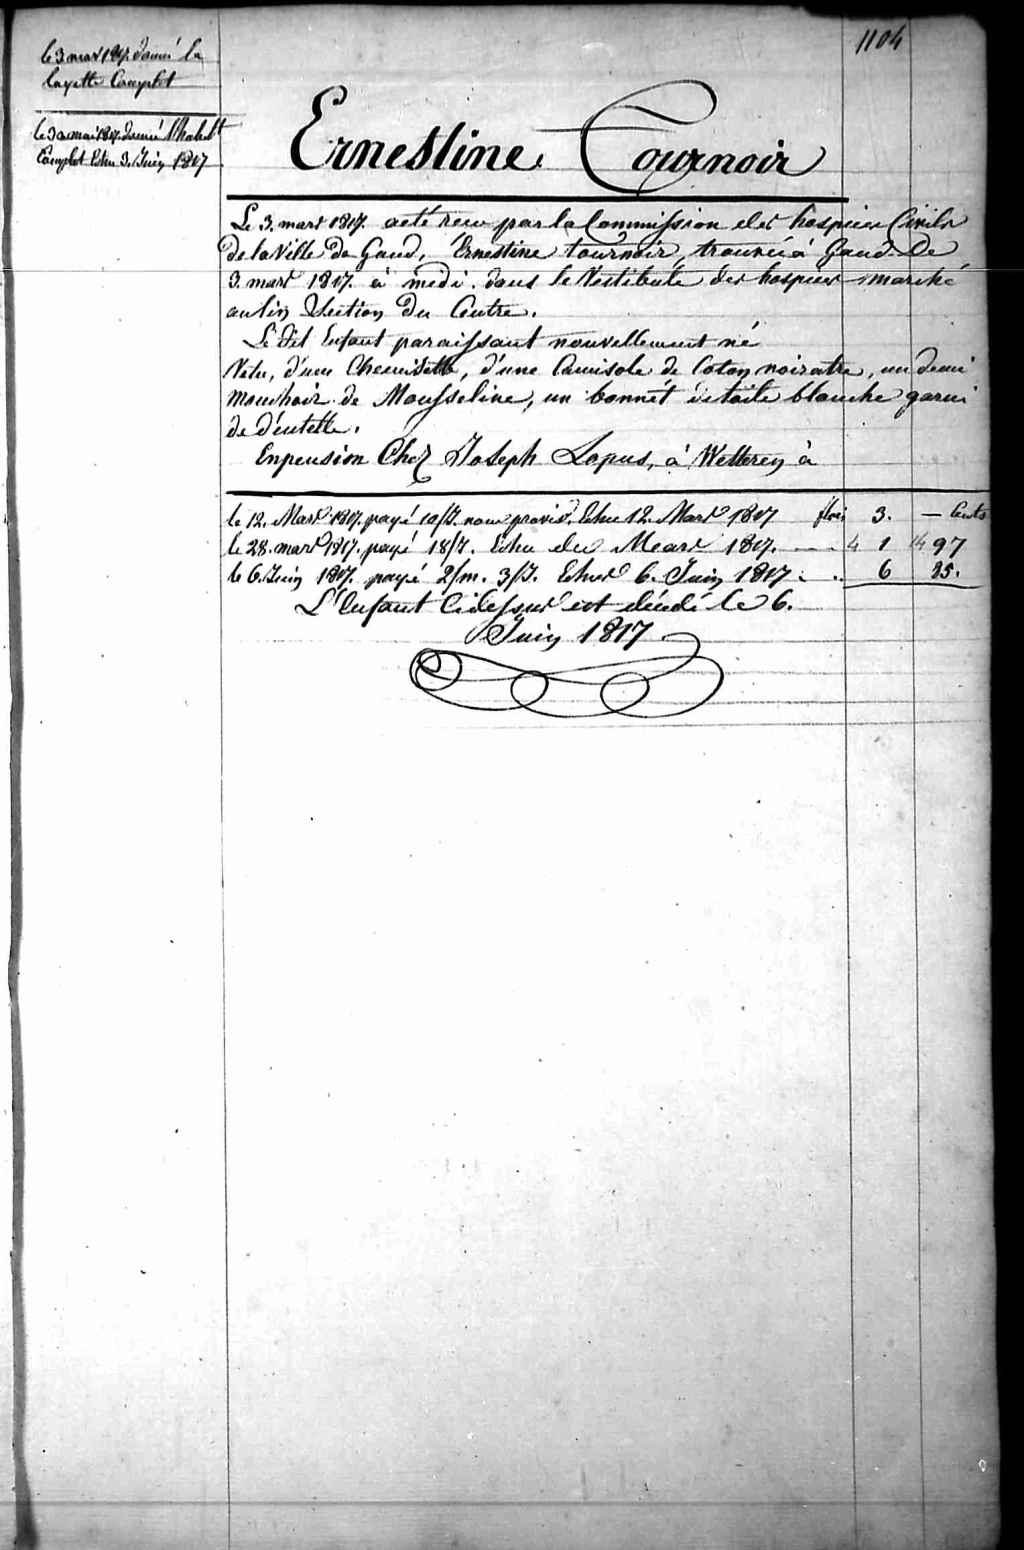 1104
le 3 mars 1817. donné la
layette Complet
le 3 mai 1817. donné
Complet Echu 3. Juin 1817
Ernestine Tournoir
Le 3. mars 1817. a eté recu par la Commission des hospices Civils
de la Ville de Gand, Ernestine tournoir, trouvée à Gand. Le
3. mars 1817. à midi. dans le Vestibule des hospices marché
au lin Section du Centre.
Le dit Enfant paraissant nouvellement né
Vetu, d'une Chemisette, d'une Camisole de Coton noiratre, un demi
mouchoir de Mousseline, un bonnét de toile blanche garni
de d'entelle.
Enpension Chez Joseph Lapus, à Wetteren à
le 12. Mars 1817. payé 10/J. nour provis. Echu 12. Mars 1817 flns 3. — Cents
le 28. mars 1817. payé 18/J. Echu du Mears 1817. 4 1 14 97
le 6. Juin 1817. payé 2/m. 3/J. Echus 6. Juin 1817. 6 25.
L'Enfant Cidessus est décédé le 6.
Juin 1817